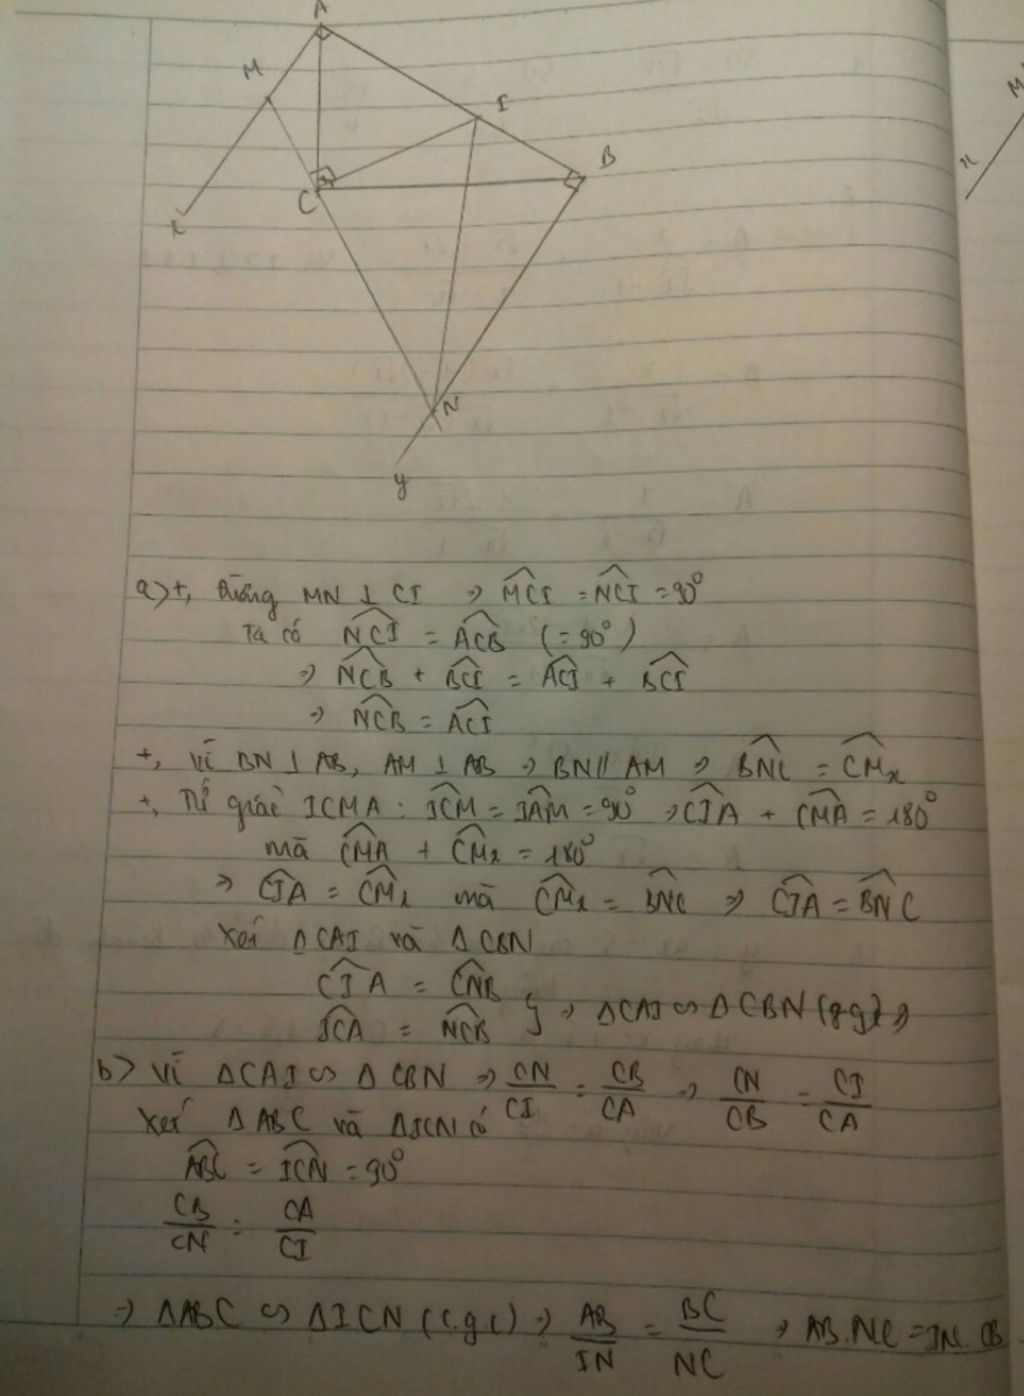 A
M
I
M
B
x
C
x
N
y
a>+, đường MN ⊥ CI ⇒ \widehat{MCI} = \widehat{NCI} = 90°
Ta có \widehat{NCI} = \widehat{ACB} (= 90°)
⇒ \widehat{NCB} + \widehat{BCI} = \widehat{ACI} + \widehat{BCI}
⇒ \widehat{NCB} = \widehat{ACI}
+, Vì BN ⊥ AB, AM ⊥ AB ⇒ BN // AM ⇒ \widehat{BNC} = \widehat{CMx}
+, Tứ giác ICMA : \widehat{ICM} = \widehat{IAM} = 90° ⇒ \widehat{CIA} + \widehat{CMA} = 180°
mà \widehat{CMA} + \widehat{CMx} = 180°
⇒ \widehat{CIA} = \widehat{CMx} mà \widehat{CMx} = \widehat{BNC} ⇒ \widehat{CIA} = \widehat{BNC}
Xét ΔCAI và ΔCBN
\widehat{CIA} = \widehat{CNB}
\widehat{ICA} = \widehat{NCB} } ⇒ ΔCAI ∽ ΔCBN (g.g)
b> Vì ΔCAI ∽ ΔCBN ⇒ CN/CI = CB/CA ⇒ CN/CB = CI/CA
Xét ΔABC và ΔICN có
\widehat{ABC} = \widehat{ICN} = 90°
CB/CN = CA/CI
⇒ ΔABC ∽ ΔICN (c.g.c) ⇒ AB/IN = BC/NC ⇒ AB.NC = IN.CB